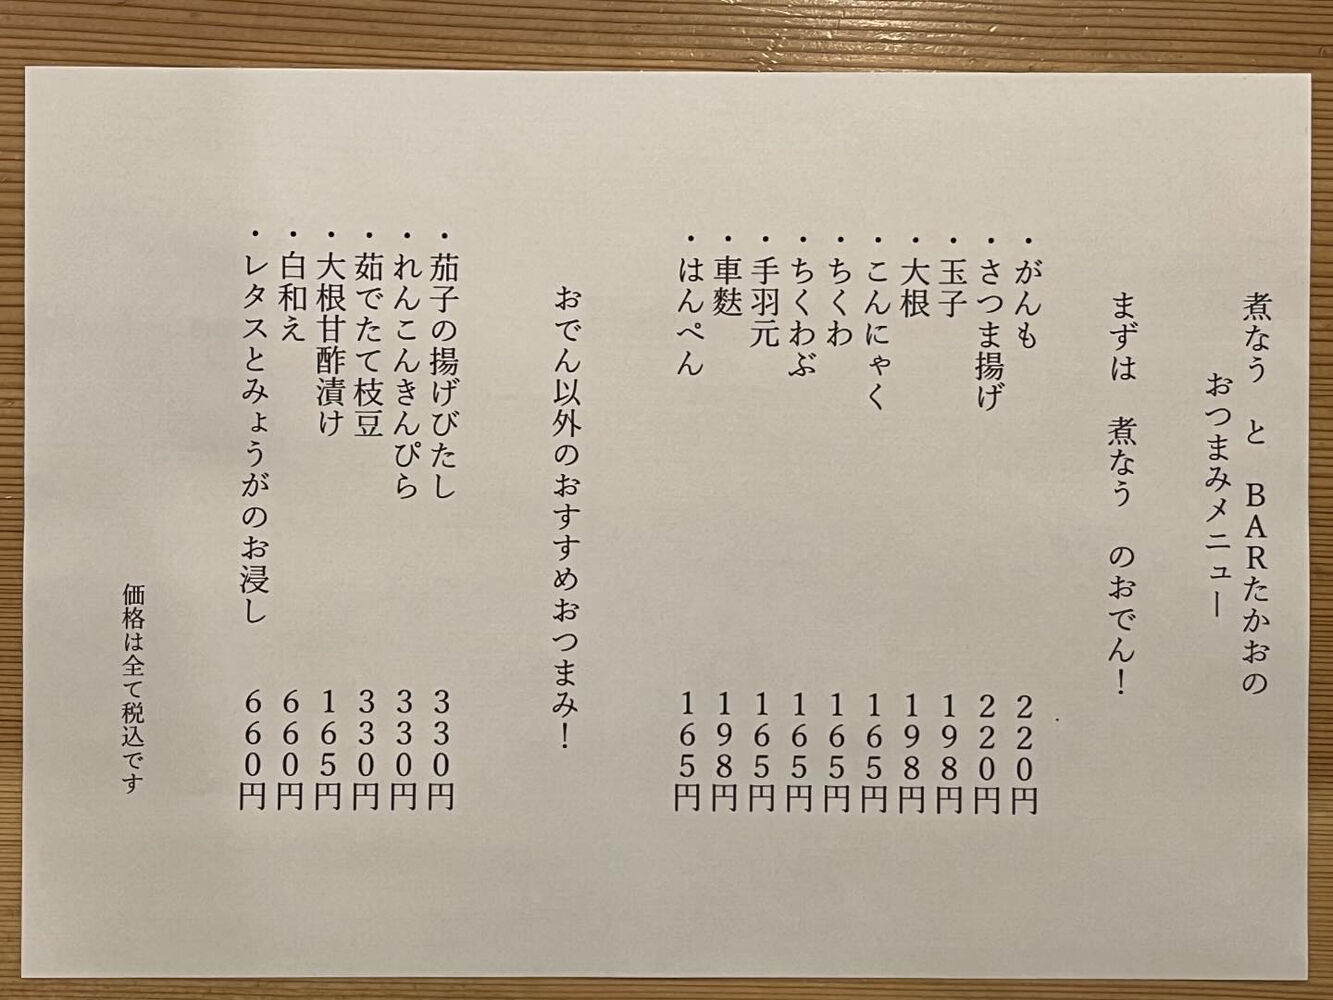 煮なう と BARたかおの
おつまみメニュー
まずは 煮なう のおでん！
・がんも 220円
・さつま揚げ 220円
・玉子 198円
・大根 198円
・こんにゃく 165円
・ちくわ 165円
・ちくわぶ 165円
・手羽元 165円
・車麩 198円
・はんぺん 165円
おでん以外のおすすめおつまみ！
・茄子の揚げびたし 330円
・れんこんきんぴら 330円
・茹でたて枝豆 330円
・大根甘酢漬け 165円
・白和え 660円
・レタスとみょうがのお浸し 660円
価格は全て税込です